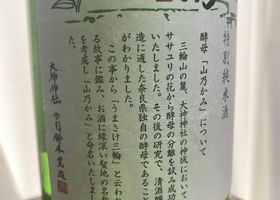 特別純米酒
酵母「山乃かみ」について
三輪山の麓、大神神社の神域において
ササユリの花から酵母の分離を試み成功
いたしました。その後の研究で、清酒醸
造に適した奈良県独自の酵母であること
がわかりました。
この事から「うまさけ三輪」と云われ
る故事に鑑み、お酒に縁深い聖地の名
を考慮し「山乃かみ」と命名いたしまし
た。
大神神社